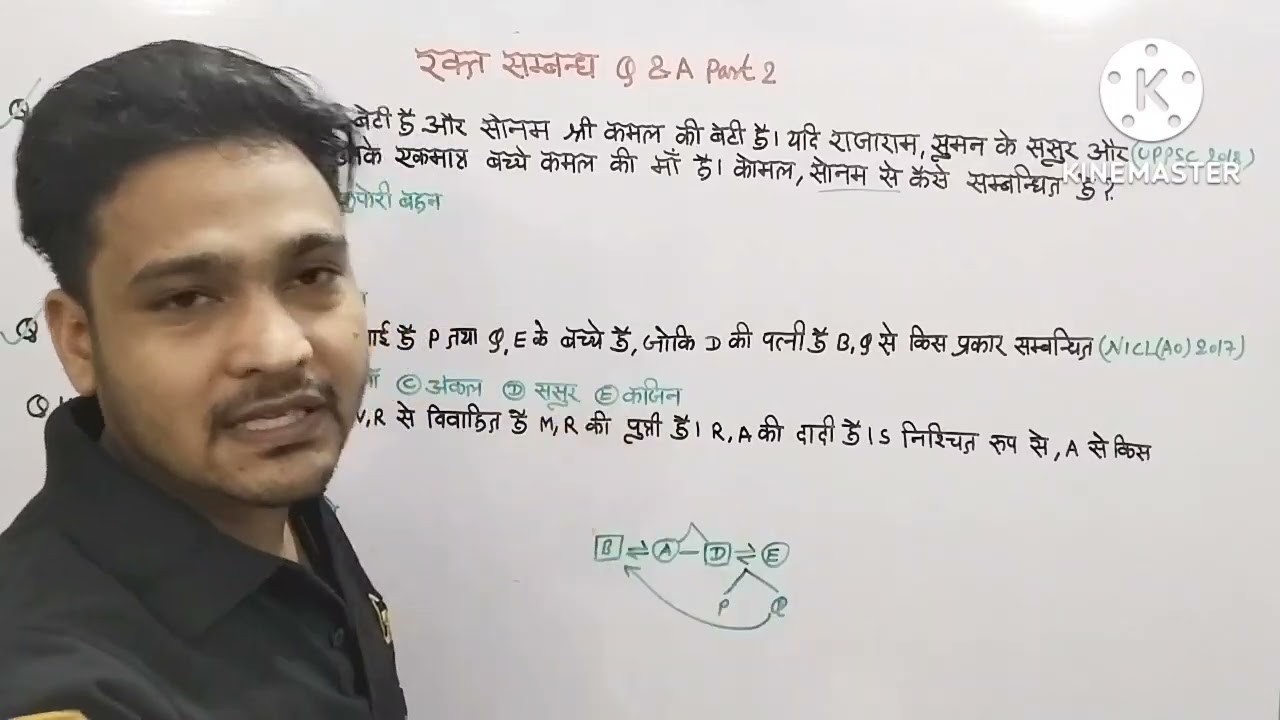 रक्त सम्बन्ध Q & A Part 2
Q
बेटी है और सोनम श्री कमल की बेटी है। यदि राजाराम, सुमन के ससुर और (UPPSC 2018)
एकमात्र बच्चे कमल की माँ है। कोमल, सोनम से कैसे सम्बन्धित है?
फुफेरी बहन
Q
है P तथा Q, E के बच्चे है, जोकि D की पत्नी है B, Q से किस प्रकार सम्बन्धित (NICL(AO) 2017)
C अंकल D ससुर E कजिन
Q
V, R से विवाहित है M, R की पुत्री है। R, A की दादी है। S निश्चित रूप से, A से किस
B ⇌ A — D ⇌ E
P Q
K
KINEMASTER